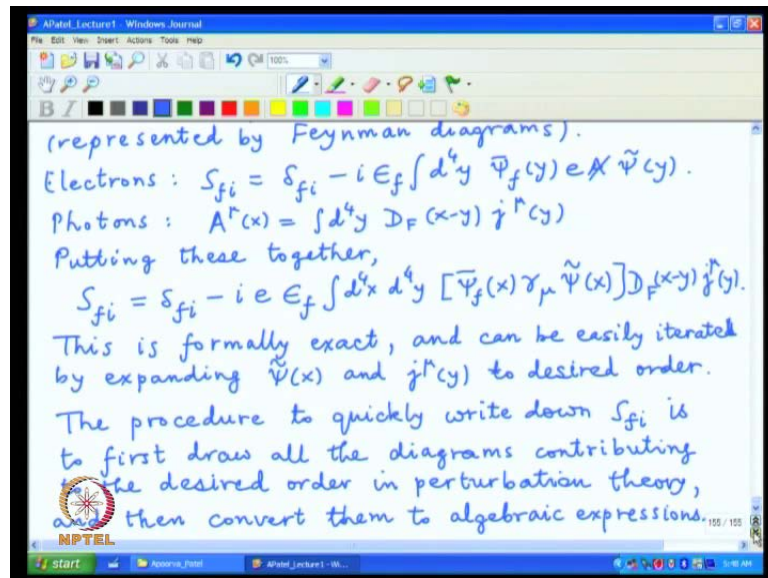 APatel_Lecture1 - Windows Journal
File Edit View Insert Actions Tools Help
100%
B I
(represented by Feynman diagrams).
Electrons : S_fi = δ_fi - i ϵ_f ∫d⁴y ψ̄_f(y) e A̸ ψ̃(y).
Photons : A^μ(x) = ∫d⁴y D_F(x-y) j^μ(y)
Putting these together,
S_fi = δ_fi - i e ϵ_f ∫d⁴x d⁴y [ψ̄_f(x) γ_μ ψ̃(x)] D_F(x-y) j^μ(y).
This is formally exact, and can be easily iterated
by expanding ψ̃(x) and j^μ(y) to desired order.
The procedure to quickly write down S_fi is
to first draw all the diagrams contributing
to the desired order in perturbation theory,
and then convert them to algebraic expressions.
155 / 155
NPTEL
start Apoorva_Patel APatel_Lecture1 - Wi... 5:48 AM